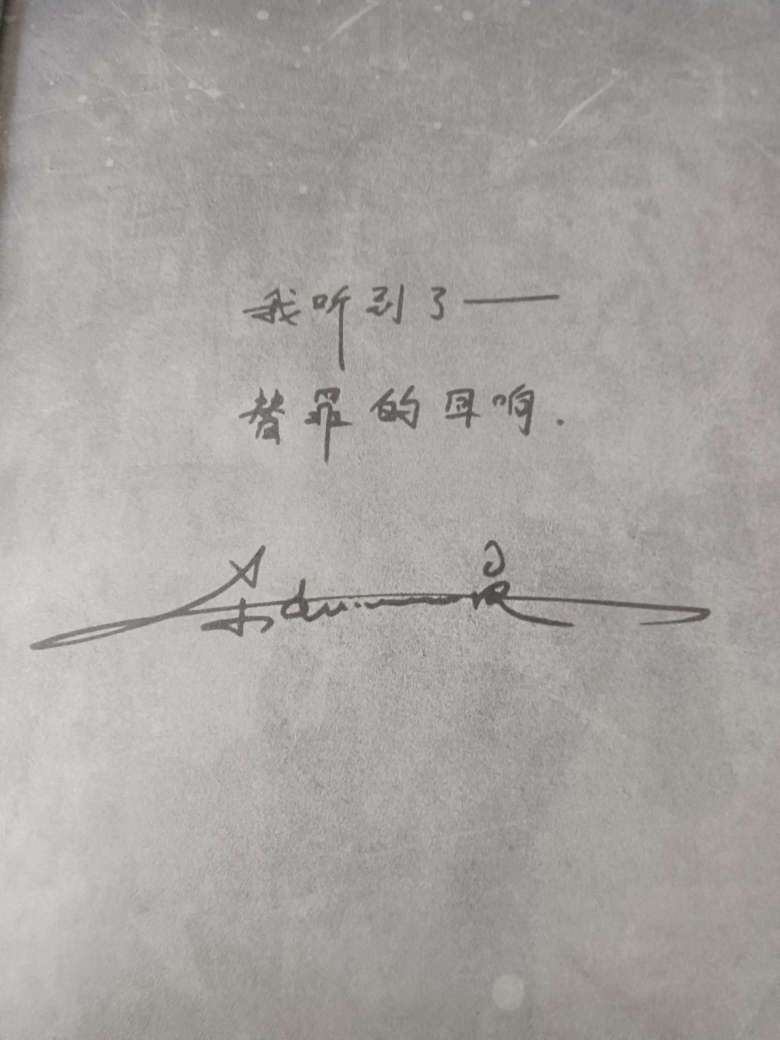 我听到了——
替罪的耳响.